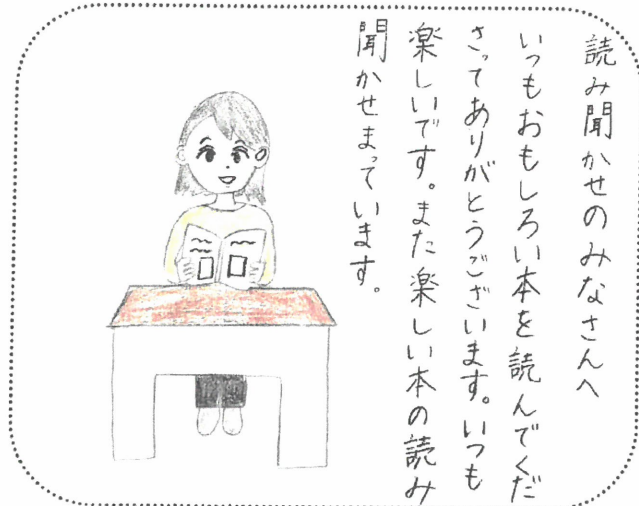 読み聞かせのみなさんへ
いつもおもしろい本を読んでくだ
さってありがとうございます。いつも
楽しいです。また楽しい本の読み
聞かせまっています。